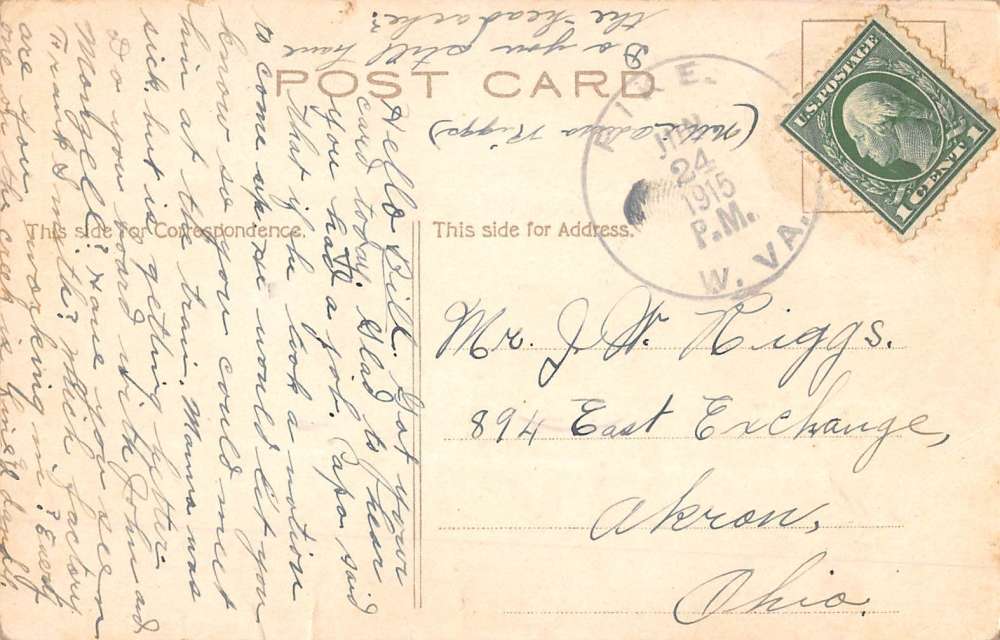 POST CARD
This side for Correspondence.
This side for Address.
Hello Bill. Got your
card today. Glad to hear
you had a job. Papa said
that if he took a notion
to come up he would let you
know so you could meet
him at the train. Mama was
sick but is getting better.
Do you board with John and
? Have you seen
Smith? Which factory
are you working in? Every
one on the creek is
Do you still have
the "headache".
Riggs)
PIKE.
24
1915
P.M.
W. VA.
U.S. POSTAGE
1 CENT 1
Mr. J. W. Riggs.
894 East Exchange,
Akron,
Ohio.